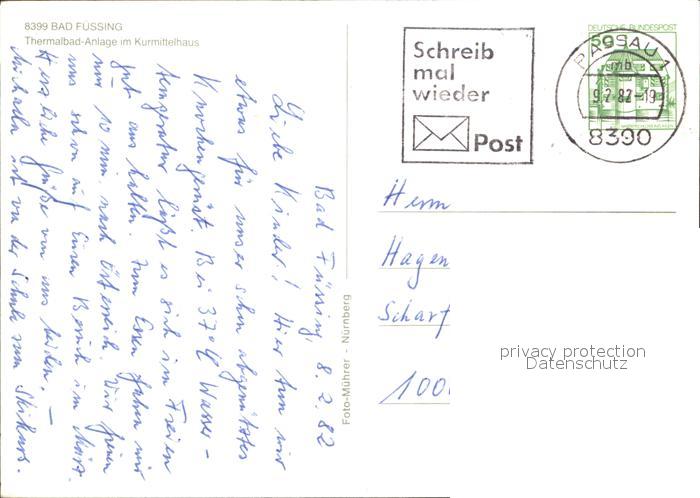 8399 BAD FÜSSING
Thermalbad-Anlage im Kurmittelhaus
Schreib
mal
wieder
Post
DEUTSCHE BUNDESPOST
50
PASSAU 1
mb
9.2.82-19
8390
Bad Füssing, 8.2.82
Liebe Kinder! Hier tun wir
etwas für unser schon abgenütztes
Knochengerüst. Bei 37°C Wasser-
temperatur läßt es sich im Freien
gut aushalten. Zum Essen fahren wir
nur 10 min. nach Österreich. Wir freuen
uns schon auf Euren Besuch im März.
Herzliche Grüße von uns beiden. –
Michaela ist von der Schule zum Skikurs.
Foto-Mührer - Nürnberg
Herrn
Hagen
Scharf
100
privacy protection
Datenschutz